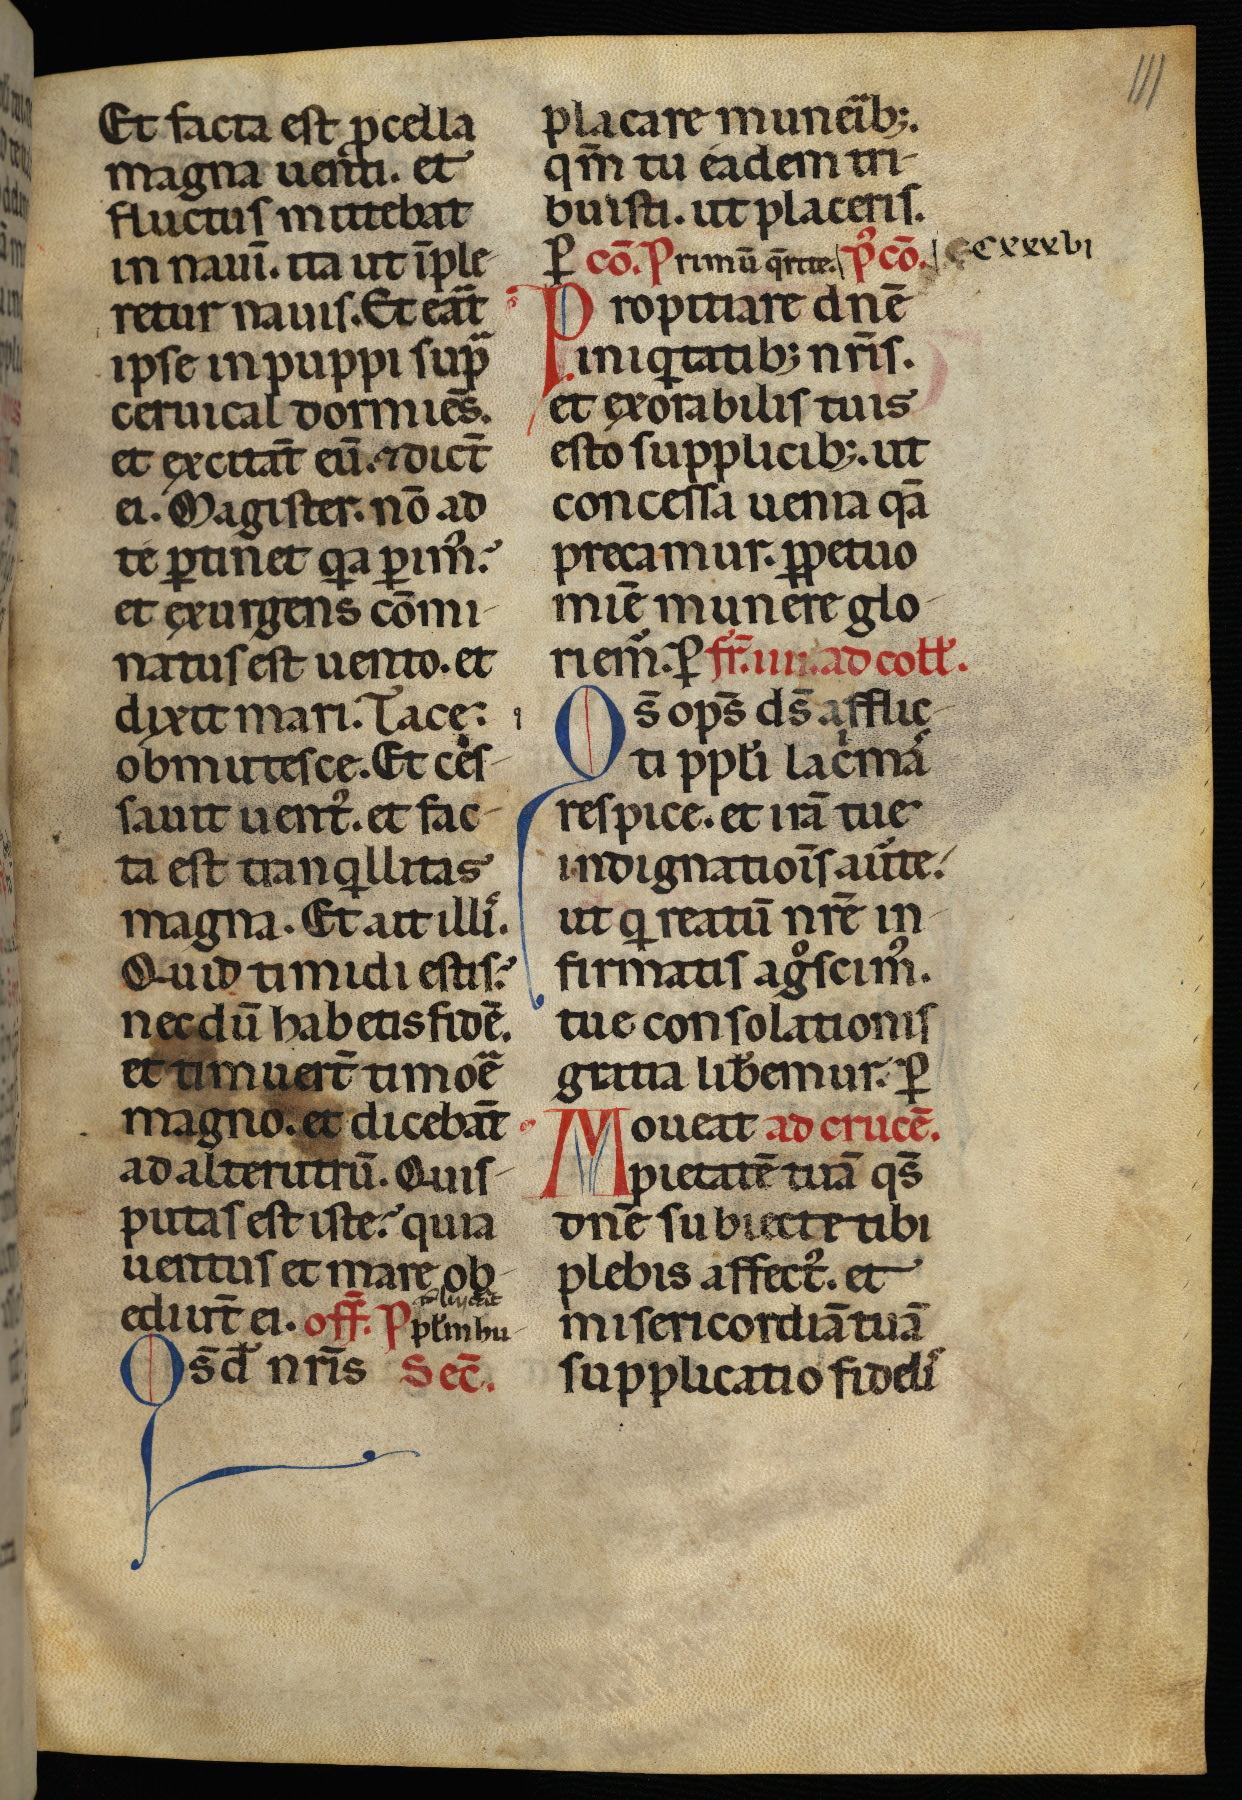 Et facta est ꝓcella
magna uenti. et
fluctus mittebat
in nauī. ita ut īple
retur nauis. Et eat
ipse in puppi sup
ceruical dormiēs.
et excitāt eū. ⁊ dict̄
ei. Magister. nō ad
te ꝑtinet qa ꝑim᷒.
et exurgens cōmi
natus est uento. et
dixit mari. Tace.
obmutesce. Et ces
sauit uent᷒. et fac
ta est tranqllitas
magna. Et ait illi.
Quid timidi estis?
necdū habetis fidē.
et timuert̄ timoe
magno. et dicebāt
ad alterutrū. Quis
putas est iste? quia
uentus et mare ob
ediut̄ ei. off̄. P pl̄m hu
Os̄ d̄ nr̄is Sec̄.
III
placare muneib;.
qm̄ tu eadem tri
buisti. ut placeris.
ꝑ cō. Primū q̄rite. p᷒ cō. CCxxxvi
Propitiare dnē
iniqtatib; nr̄is.
et exorabilis tuis
esto supplicib;. ut
concessa uenia qā
precamur. ꝑpetuo
mīe munere glo
riem᷒. ꝑ fr̄. iiii. ad coll̄.
Os̄ ops̄ ds̄ afflic
ti ppl̄i lacmā
respice. et irā tue
indignatiōis aūte.
ut q reatū nr̄e in
firmatis agᷤoscim᷒.
tue consolationis
gratia lib̄emur. ꝑ
Moueat ad crucē.
pietatē tuā qs̄
dnē subiecte tibi
plebis affect᷒. et
misericordiā tuā
supplicatio fideli